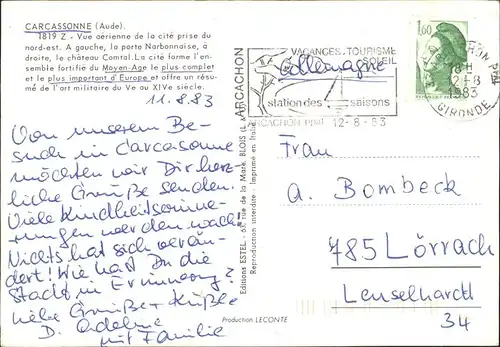 CARCASSONNE (Aude).
1819 Z - Vue aérienne de la cité prise du
nord-est. A gauche, la porte Narbonnaise, à
droite, le château Comtal. La cité forme l'en-
semble fortifié du Moyen-Age le plus complet
et le plus important d'Europe et offre un résu-
mé de l'art militaire du Ve au XIVe siècle.
11.8.83
Von unserem Be-
such in Carcasonne
möchten wir Dir herz-
liche Grüße senden.
Viele Kindheitserinne-
rungen werden wach!
Nichts hat sich verän-
dert! Wie hast Du die
Stadt in Erinnerung?
Liebe Grüße + Küße
D. Adelme
mit Familie
Editions ESTEL - rue de la Mare, BLOIS (L.
Reproduction interdite - Imprimé en Italie
Production LECONTE
ARCACHON
VACANCES TOURISME
SOLEIL
station des saisons
ARCACHON Ppal 12-8-83
Allemagne
1,60
18 H
12-8
1983
GIRONDE
Frau
A. Bombeck
785 Lörrach
Lenselhardtl
34